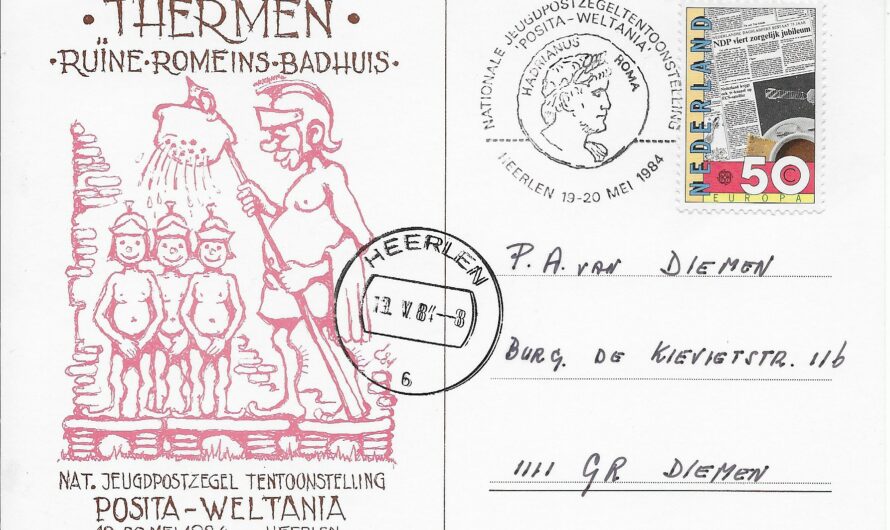 • THERMEN •
• RUÏNE • ROMEINS • BADHUIS •
NAT. JEUGDPOSTZEGEL TENTOONSTELLING
POSITA-WELTANIA
19-20 MEI 1984 HEERLEN
NATIONALE JEUGDPOSTZEGELTENTOONSTELLING
'POSITA-WELTANIA'
HADRIANUS ROMA
HEERLEN 19-20 MEI 1984
NEDERLAND
NDP viert zorgelijk jubileum
50 c
EUROPA
HEERLEN
19 V 84-8
6
P. A. VAN DIEMEN
BURG. DE KIEVIETSTR. 116
1111 GR DIEMEN